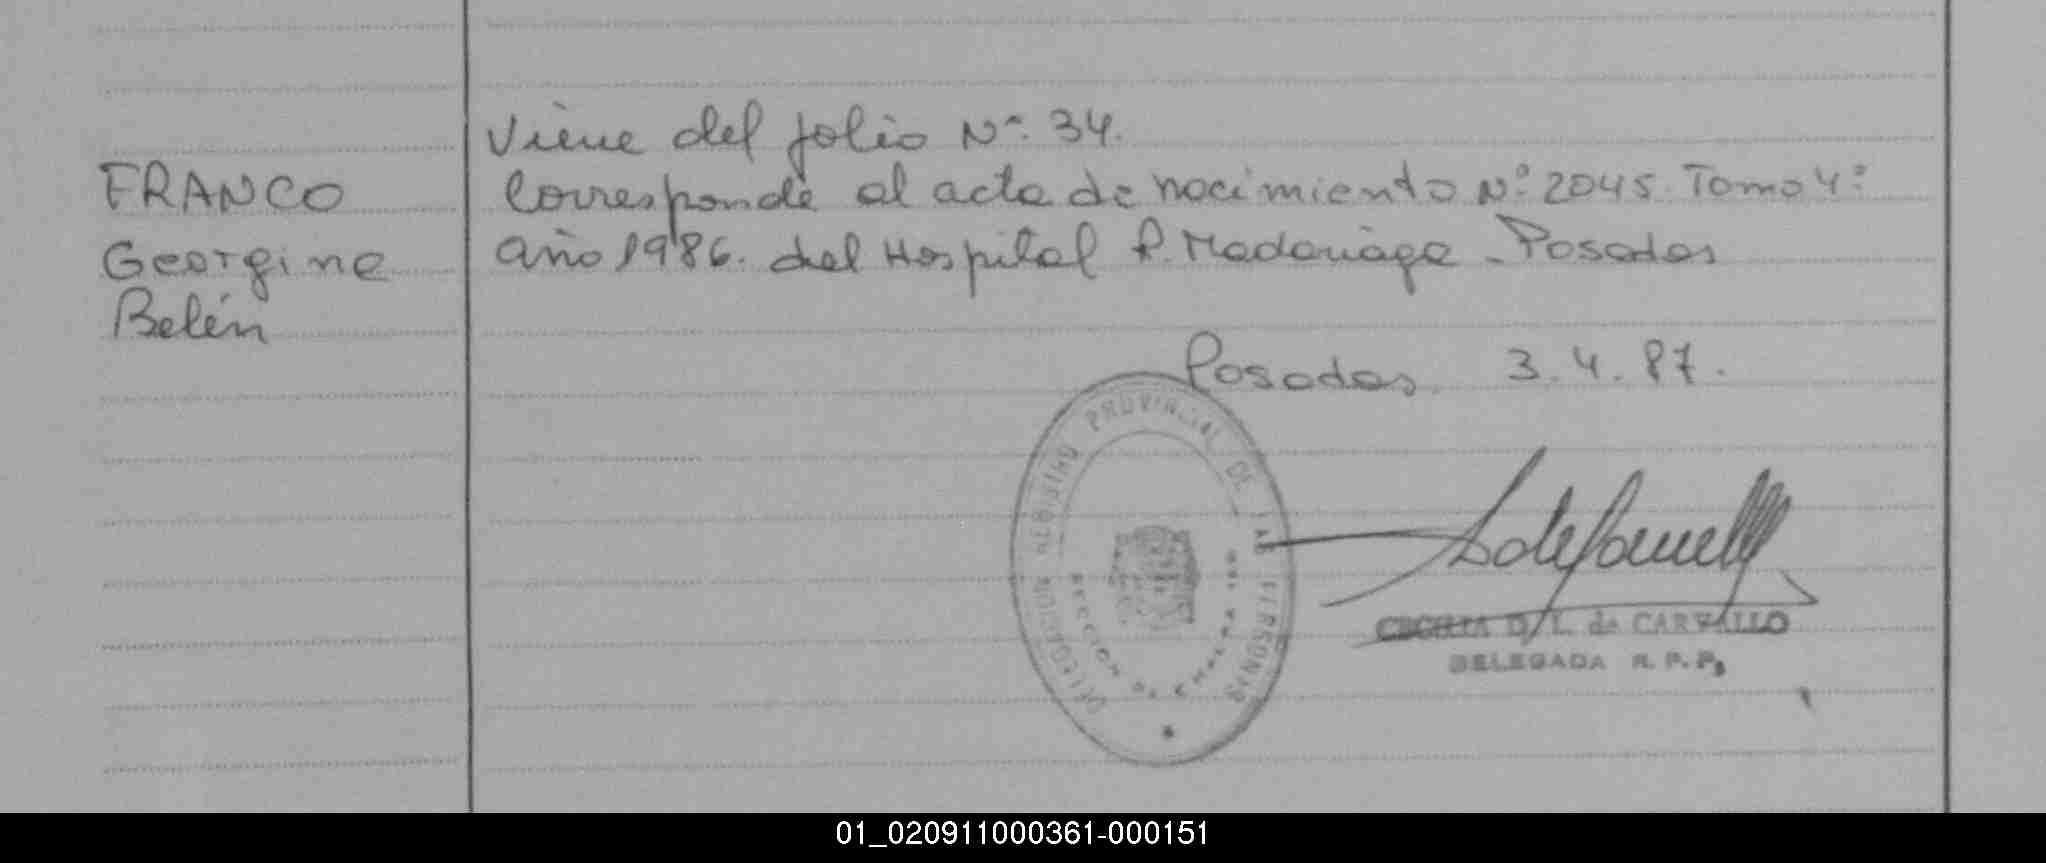 Viene del folio Nº 34.
FRANCO
Georgina
Belén
Corresponde al acta de nacimiento Nº 2045. Tomo 4º
año 1986. del Hospital R. Madariaga - Posadas
Posadas 3.4.87.
REGISTRO PROVINCIAL DE LAS PERSONAS
SECCION DE
CECILIA D. L. de CARVALLO
DELEGADA R. P. P.
01_020911000361-000151